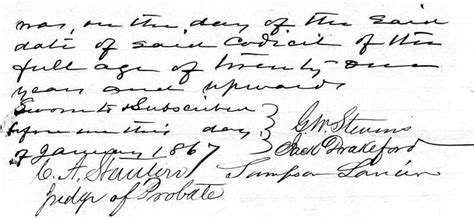 was, on the day of the said
date of said Codicil of the
full age of twenty one
years and upwards
Sworn to & Subscribed
before me this day
of January 1867
G W Stevens
Jack Drakeford
Sampson Lanier
C. A. Stanton
Judge of Probate